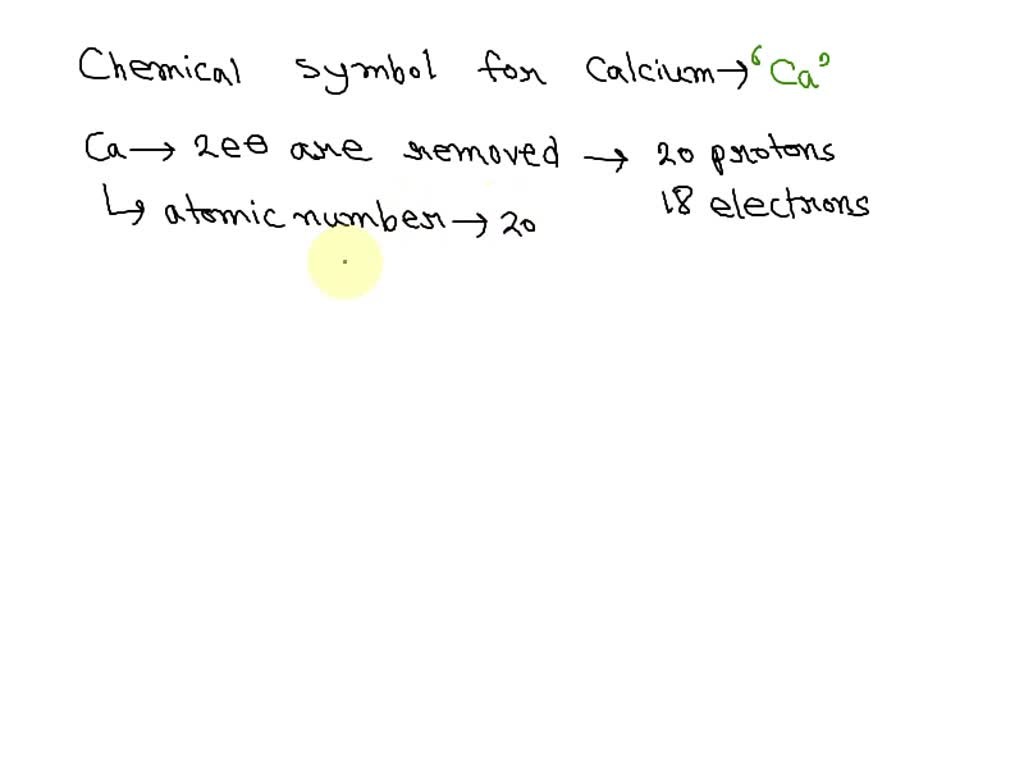 Chemical symbol for Calcium → “Ca”
Ca → 2e⊖ are removed → 20 protons
18 electrons
↳ atomic number → 20